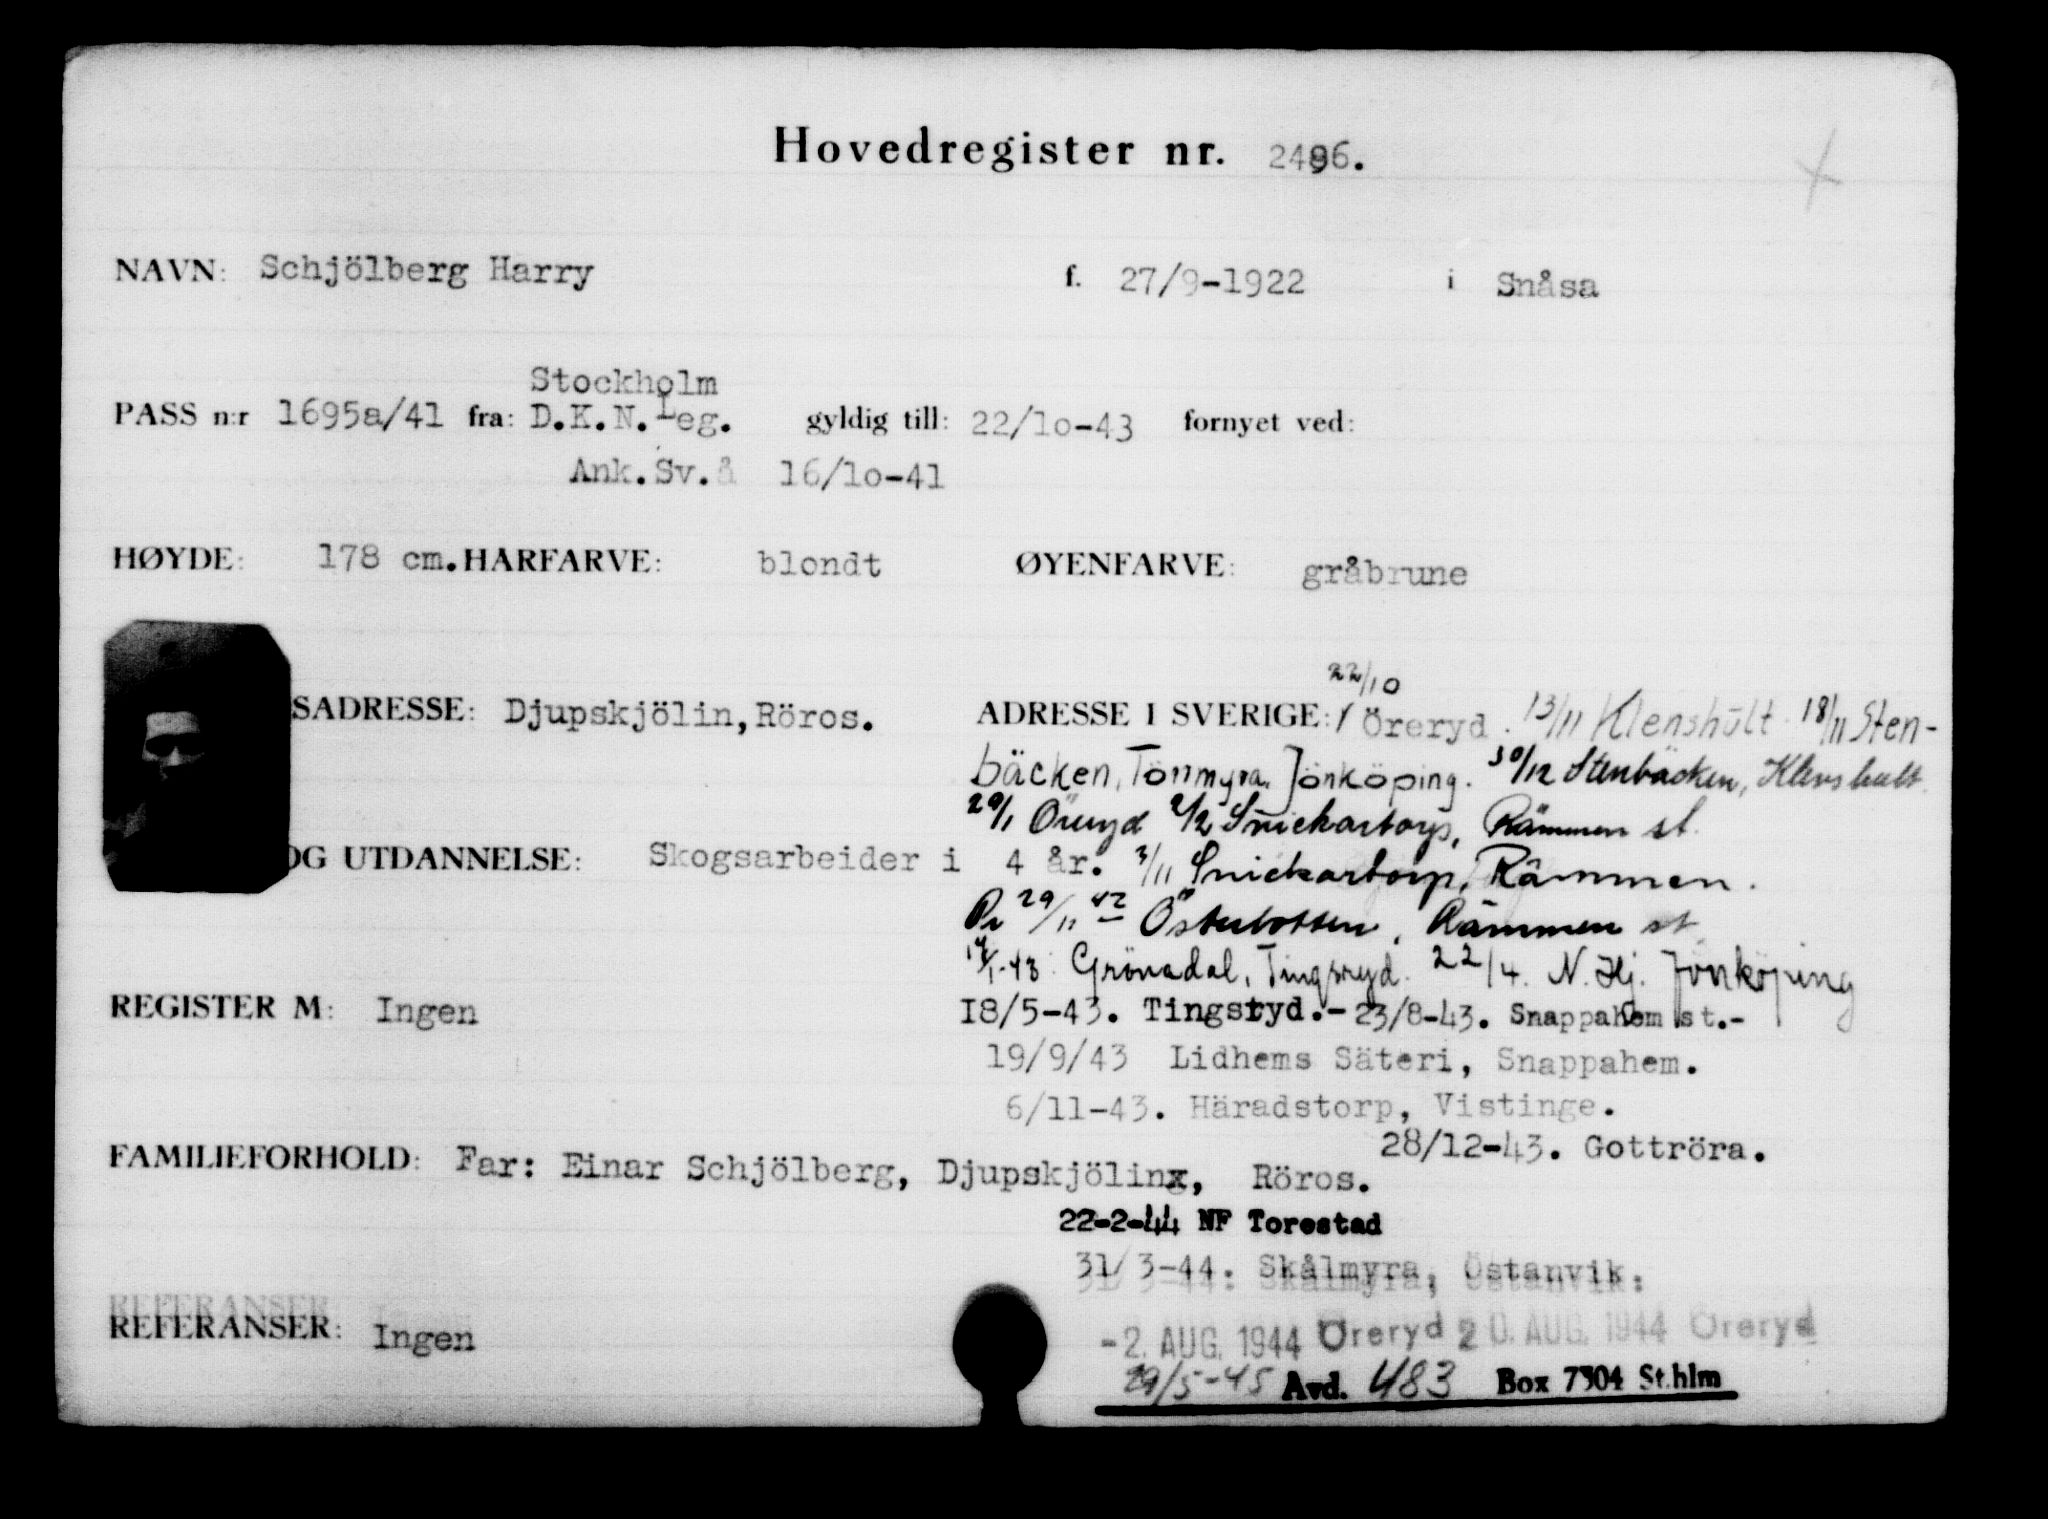 Hovedregister nr. 2496.
NAVN: Schjölberg Harry f. 27/9-1922 i Snåsa
Stockholm
PASS n:r 1695a/41 fra: D.K.N.Leg. gyldig till: 22/10-43 fornyet ved:
Ank.Sv.å 16/10-41
HØYDE: 178 cm. HARFARVE: blondt ØYENFARVE: gråbrune
22/10
SADRESSE: Djupskjölin, Röros. ADRESSE I SVERIGE: Öreryd. 13/11 Klenshult 18/11 Sten-
bäcken, Tönmyra, Jönköping. 30/12 Stenbäcken, Klenshult.
29/1 Öreryd 2/2 Snickartorp, Rämmen st.
OG UTDANNELSE: Skogsarbeider i 4 år. 3/11 Snickartorp, Rämmen.
Pr 29/11 42 Österbotten, Rämmen st.
14/1-43: Grönadal, Tingsryd. 22/4. N. Hj. Jönköping
REGISTER M: Ingen 18/5-43. Tingsryd.- 23/8-43. Snappahem st.-
19/9/43 Lidhems Säteri, Snappahem.
6/11-43. Häradstorp, Vistinge.
28/12-43. Gottröra.
FAMILIEFORHOLD: Far: Einar Schjölberg, Djupskjölinx, Röros.
22-2-44 NF Torestad
31/3-44. Skålmyra, Östanvik.
REFERANSER: Ingen
-2. AUG. 1944 Öreryd 20. AUG. 1944 Öreryd
29/5-45 Avd. 483 Box 7304 St.hlm